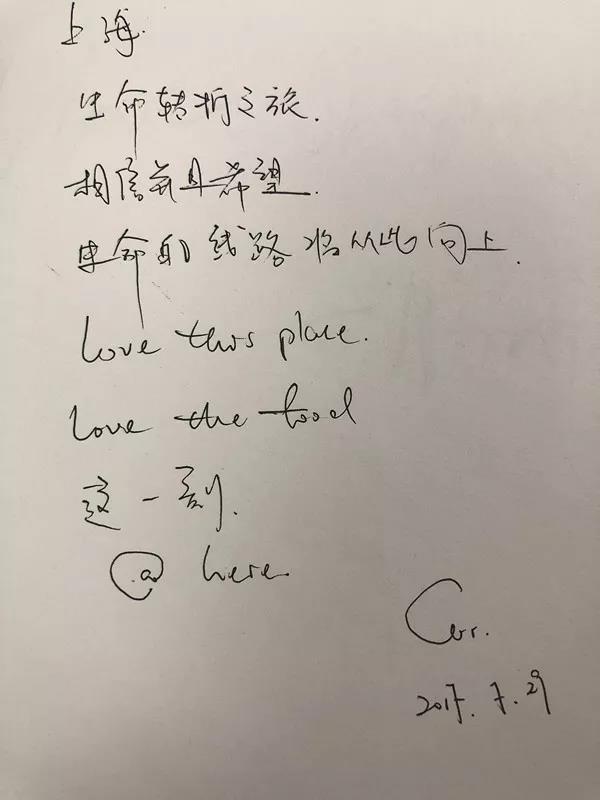 上海.
生命转折之旅.
相信并且希望.
生命的线路将从此向上.
Love this place.
Love the food
这一刻.
@ here.
2017.7.29